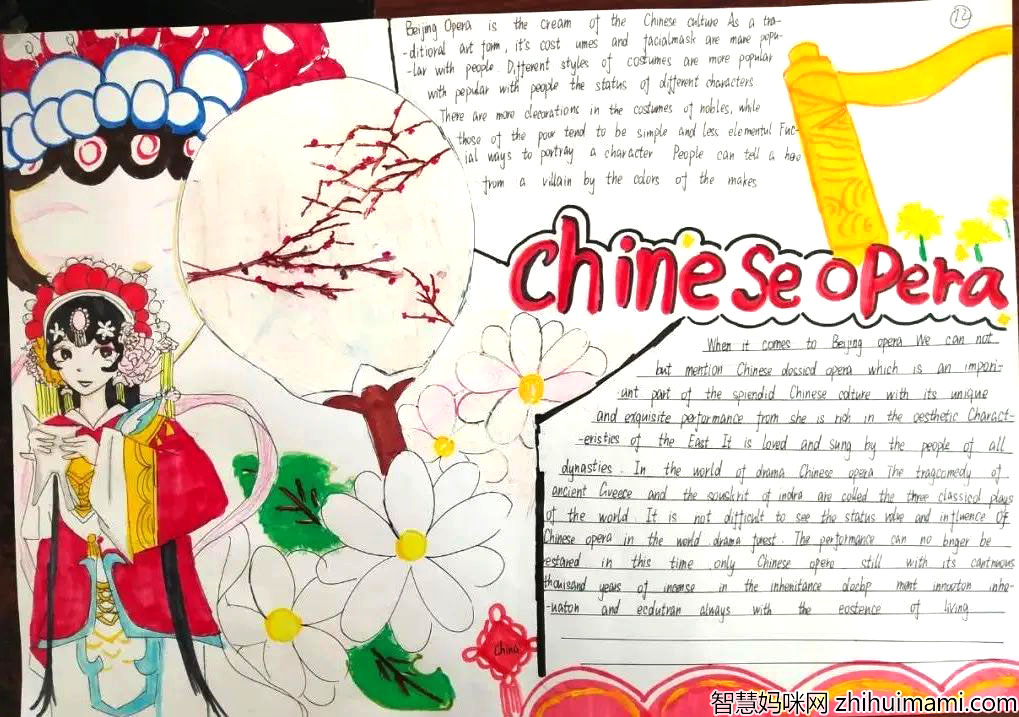 12
Beijing Opera is the cream of the Chinese culture As a tra-
-ditional art form, it's cost umes and facialmask are mare popu-
-lar with people. Different styles of costumes are more popular
with pepular with people the status of different characters.
There are more decorations in the costumes of nobles, while
those of the poor tend to be simple and less elemental Fuc-
ial ways to portray a character People can tell a heo
from a villain by the colors of the makes
Chinese opera
When it comes to Beijing opera We can not
but mention Chinese clossicd opera which is an impori-
unt part of the splendid Chinese colture with its unique
and exquisite performance from she is rich in the aesthetic Charact-
-eristics of the East It is loved and sung by the people of all
dynasties. In the world of drama Chinese opera The tragcomedy of
ancient Greece and the souskrit of indra are called the three classicol plays
of the world It is not difficult to see the status volue and influence Of
Chinese opera in the world drama furest. The performance can no bnger be
estared in this time only Chinese opero still with its cantnuous
thousand years of incense in the inhenitance ment innooton inho-
-vaton and ecdutran always with the eostence of living
China
智慧妈咪网 zhihuimami.com